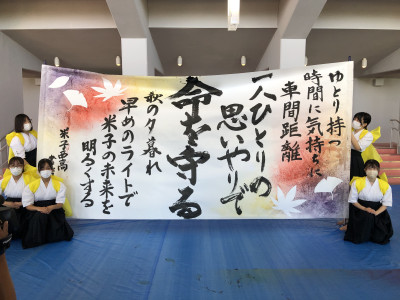 ゆとり持つ
時間に気持ちに
車間距離
一人ひとりの
思いやりで
命を守る
秋の夕暮れ
早めのライトで
米子の未来を
明るくする
米子西高